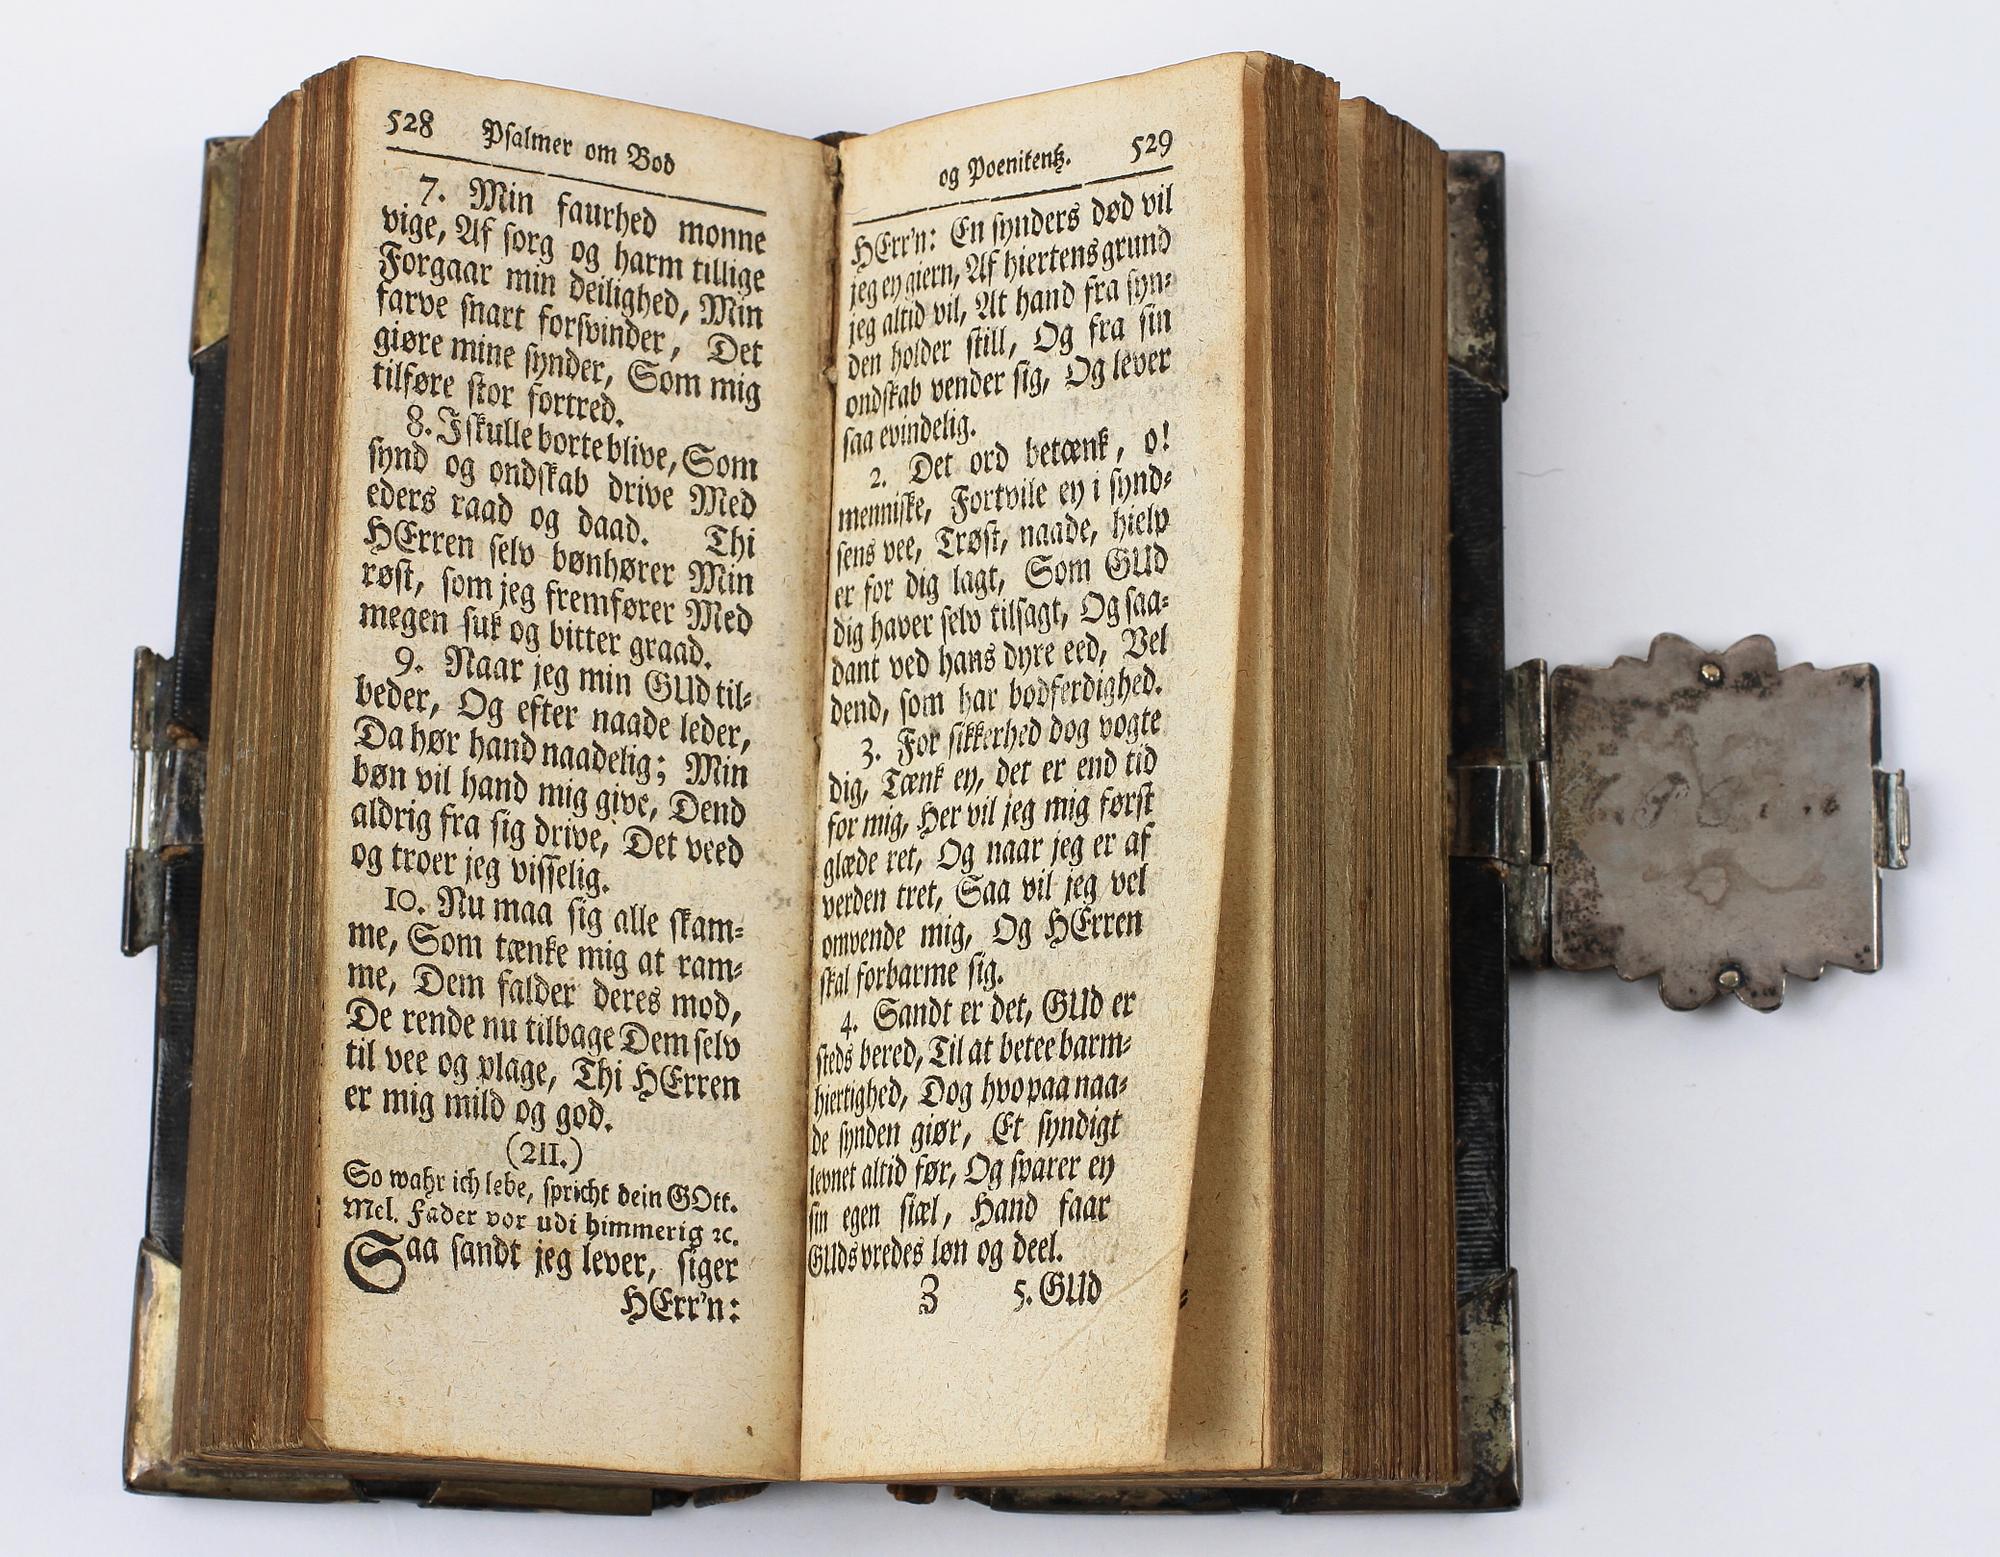 528 Psalmer om Bod
7. Min faurhed monne
vige, Af sorg og harm tillige
Forgaar min deilighed, Min
farve snart forsvinder, Det
giøre mine synder, Som mig
tilføre stor fortred.
8. I skulle borte blive, Som
synd og ondskab drive Med
eders raad og daad. Thi
HErren selv bønhører Min
røst, som jeg fremfører Med
megen suk og bitter graad.
9. Naar jeg min GUd til-
beder, Og efter naade leder,
Da hør hand naadelig; Min
bøn vil hand mig give, Dend
aldrig fra sig drive, Det veed
og troer jeg visselig.
10. Nu maa sig alle skam-
me, Som tænke mig at ram-
me, Dem falder deres mod,
De rende nu tilbage Dem selv
til vee og plage, Thi HErren
er mig mild og god.
(211.)
So wahr ich lebe, spricht dein GOtt.
Mel. Fader vor udi himmerig ꝛc.
Saa sandt jeg lever, siger
HErr'n:
og Poenitentz. 529
HErr'n: En synders død vil
jeg ey giern, Af hiertens grund
jeg altid vil, At hand fra syn-
den holder still, Og fra sin
ondskab vender sig, Og lever
saa evindelig.
2. Det ord betænk, o!
menniske, Fortvile ey i synd-
sens vee, Trøst, naade, hielp
er for dig lagt, Som GUd
dig haver selv tilsagt, Og saa-
dant ved hans dyre eed, Vel
dend, som har bodferdighed.
3. For sikkerhed dog vogte
dig, Tænk ey, det er end tid
for mig, Her vil jeg mig først
glæde ret, Og naar jeg er af
verden tret, Saa vil jeg vel
omvende mig, Og HErren
skal forbarme sig.
4. Sandt er det, GUd er
steds bered, Til at betee barm-
hiertighed, Dog hvo paa naa-
de synden giør, Et syndigt
levnet altid før, Og sparer ey
sin egen siæl, Hand faar
GUds vredes løn og deel.
Z 5. GUd